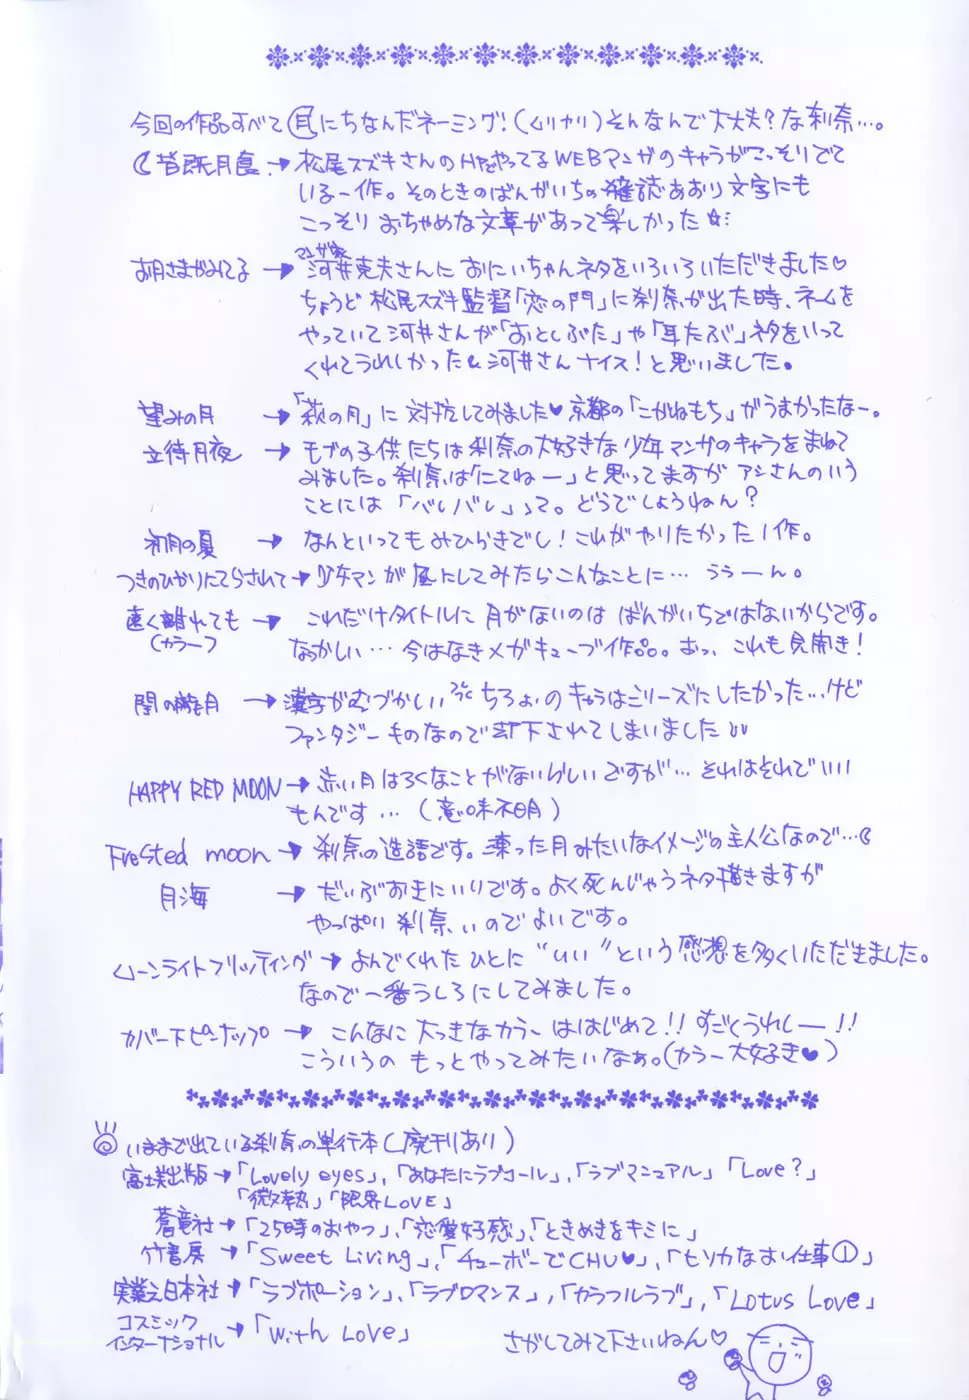 今回の作品すべて月にちなんだネーミング!(ムリヤリ)そんなんで大丈夫?な刹奈…。
皆既月食.→松尾スズキさんのHPでやってるWEBマンガのキャラがこっそりでて
いる一作。そのときのばんがいちの雑誌あおり文字にも
こっそり おちゃめな文章があって楽しかった☆
マンガ家
お月さまがみてる→河井克夫さんに おにいちゃんネタをいろいろいただきました♡
ちょうど 松尾スズキ監督「恋の門」に刹奈が出た時、ネームを
やっていて河井さんが「おとしぶた」や「耳たぶ」ネタをいって
くれてうれしかった 河井さん ナイス!と思いました。
望みの月→「萩の月」に 対抗してみました♥京都の「こがねもち」がうまかったなー。
立待月夜→モブの子供たちは刹奈の大好きな少年マンガのキャラをまねて
みました。刹奈は「にてねー」と思ってますが アシさんのいう
ことには「バレバレ」って。どうでしょうねん?
初月の夏→なんといってもみひらきでし!これがやりたかった1作。
つきのひかりにてらされて→少年マンガ風にしてみたらこんなことに… ううーん。
遠く離れても→これだけタイトルに 月がないのは ばんがいちではないからです。
(カラー) なつかしい… 今はなきメガキューブ作品。おっ、これも見開き!
闇の朧月→漢字がむづかしい ちょい のキャラはシリーズにしたかった…けど
ファンタジーものなので却下されてしまいました
HAPPY RED MOON→赤い月はろくなことがないらしいですが… それはそれでいい
もんです…(意味不明)
Frosted moon→刹奈の造語です。凍った月みたいなイメージの主人公なので…
月海→だいぶお気にいりです。よく死んじゃうネタ描きますが
やっぱり 刹奈、いのでよいです。
ムーンライトフリッティング→よんでくれたひとに "いい"という感想を多くいただきました。
なので一番うしろにしてみました。
カバー下ピンナップ→こんなに大っきなカラーははじめて!!すごくうれしー!!
こういうの もっとやってみたいなぁ。(カラー大好き♥)
いままで出ている刹奈の単行本(廃刊あり)
富士美出版→「Lovely eyes」、「あなたにラブコール」、「ラブマニュアル」「Love?」
「微熱」「限界LOVE」
蒼竜社→「25時のおやつ」、「恋愛好感」、「ときめきをキミに」
竹書房→「Sweet Living」、「チューボーでCHU♥」、「ヒソカなお仕事①」
実業之日本社→「ラブポーション」、「ラブロマンス」、「カラフルラブ」、「Lotus Love」
コスミック
インターナショナル→「With Love」 さがしてみて下さいねん♡